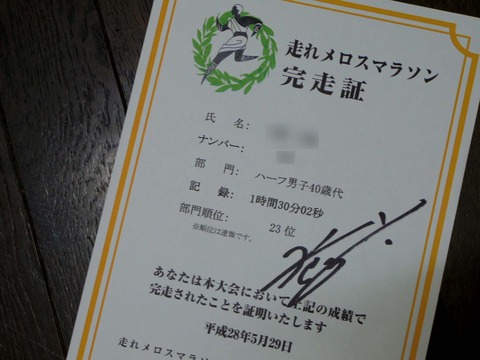 走れメロスマラソン
完走証
氏 名:
ナンバー:
部 門: ハーフ男子40歳代
記 録: 1時間30分02秒
部門順位: 23 位
※順位は速報です。
あなたは本大会において上記の成績で
完走されたことを証明いたします
平成28年5月29日
走れメロスマラソン